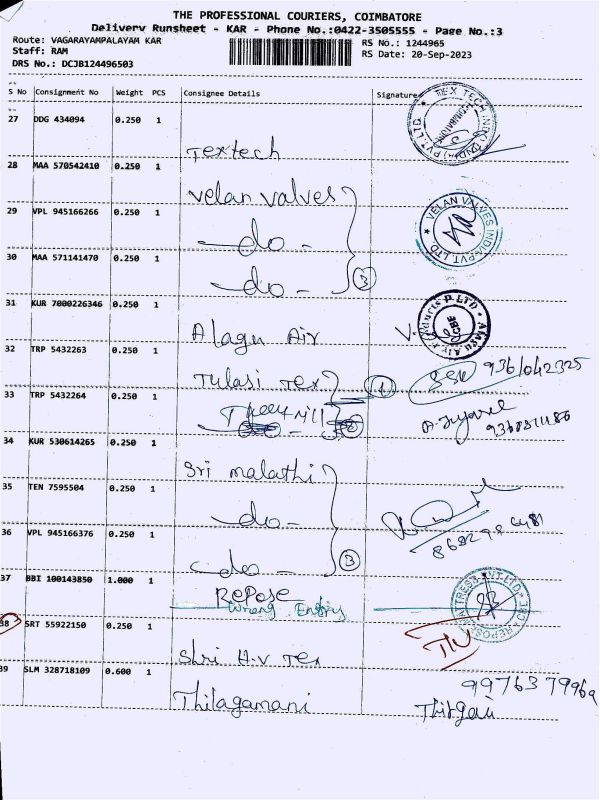 THE PROFESSIONAL COURIERS, COIMBATORE
Delivery Runsheet - KAR - Phone No.:0422-3505555 - Page No.:3
Route: VAGARAYAMPALAYAM KAR
RS No.: 1244965
Staff: RAM
RS Date: 20-Sep-2023
DRS No.: DCJB124496503
S No Consignment No Weight PCS Consignee Details Signature
27 DDG 434094 0.250 1
Textech
28 MAA 570542410 0.250 1
Velan Valves
VELAN VALVES INDIA PVT. LTD
29 VPL 945166266 0.250 1
- do -
30 MAA 571141470 0.250 1
- do -
3
31 KUR 7000226346 0.250 1
Alagu Air
32 TRP 5432263 0.250 1
Tulasi Tex
1
9361042325
33 TRP 5432264 0.250 1
34 KUR 530614265 0.250 1
Sri malathi
35 TEN 7595504 0.250 1
- do -
36 VPL 945166376 0.250 1
- do -
3
37 BBI 100143850 1.000 1
Repose
Wrong Entry
38 SRT 55922150 0.250 1
Shri H.V Tex
39 SLM 328718109 0.600 1
Thilagamani
9976379969